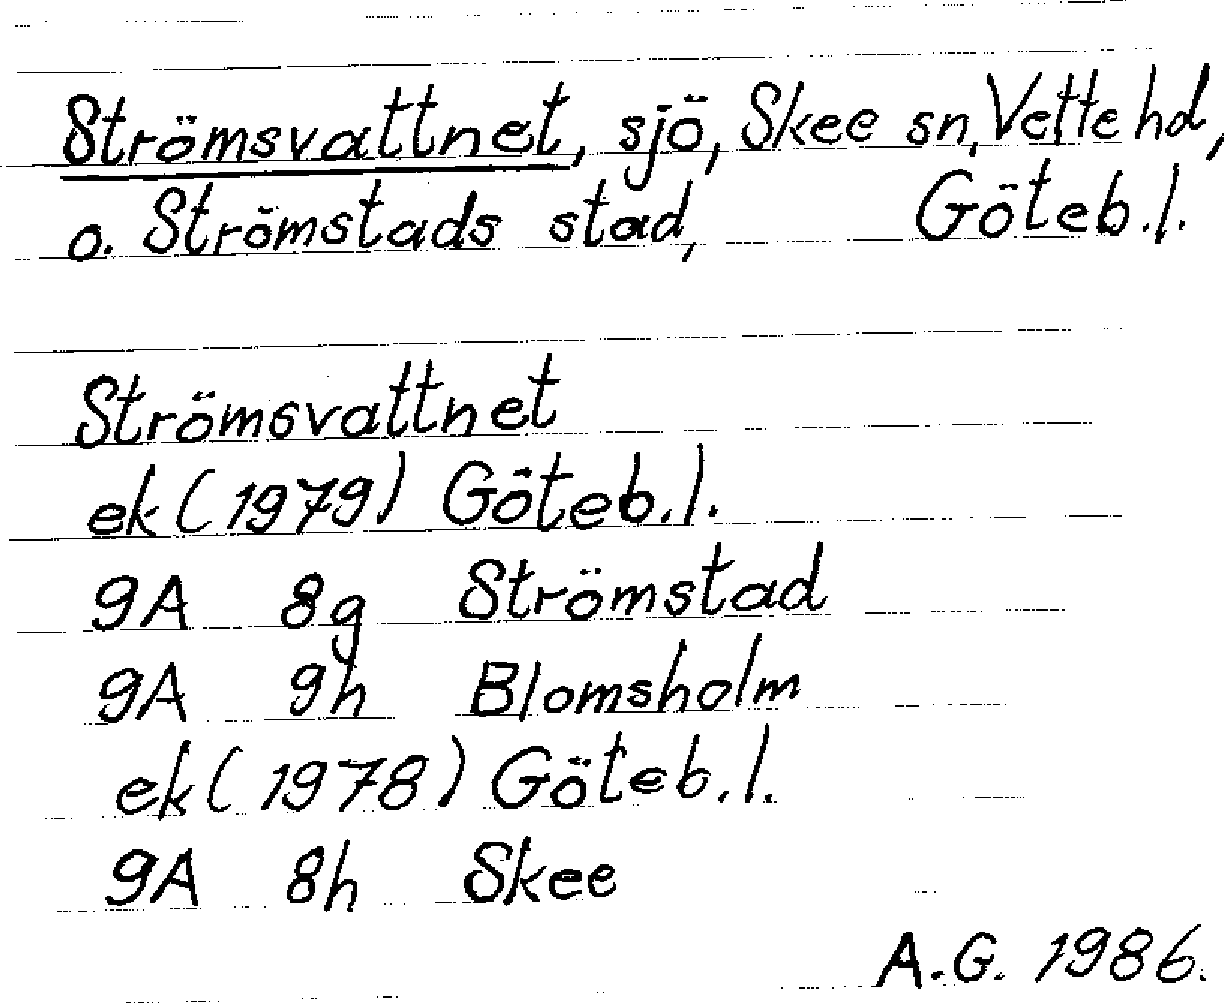 Strömsvattnet, sjö, Skee sn, Vette hd,
o. Strömstads stad, Göteb.l.
Strömsvattnet
ek (1979) Göteb.l.
9A 8g Strömstad
9A 9h Blomsholm
ek (1978) Göteb.l.
9A 8h Skee
A.G. 1986.